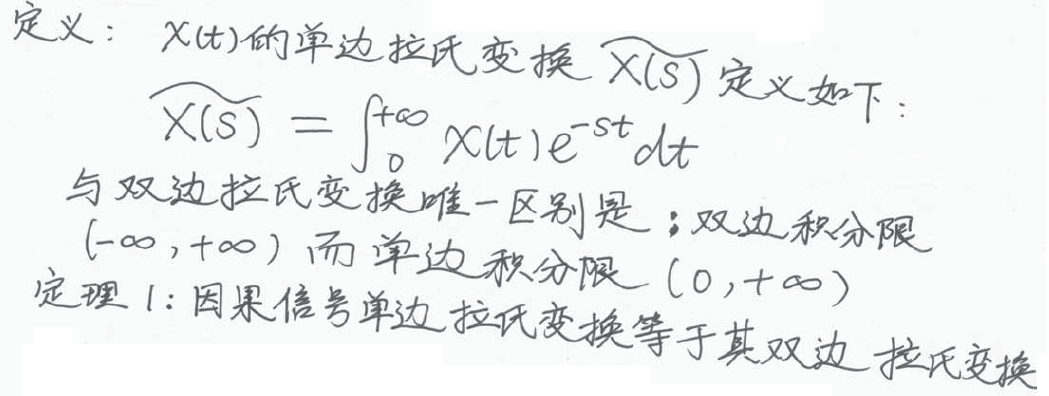 定义： x(t)的单边拉氏变换 X͠(s) 定义如下：
X͠(s) = ∫₀^{+∞} x(t)e^{-st}dt
与双边拉氏变换唯一区别是；双边积分限
(-∞,+∞) 而单边积分限 (0,+∞)
定理1:因果信号单边拉氏变换等于其双边拉氏变换